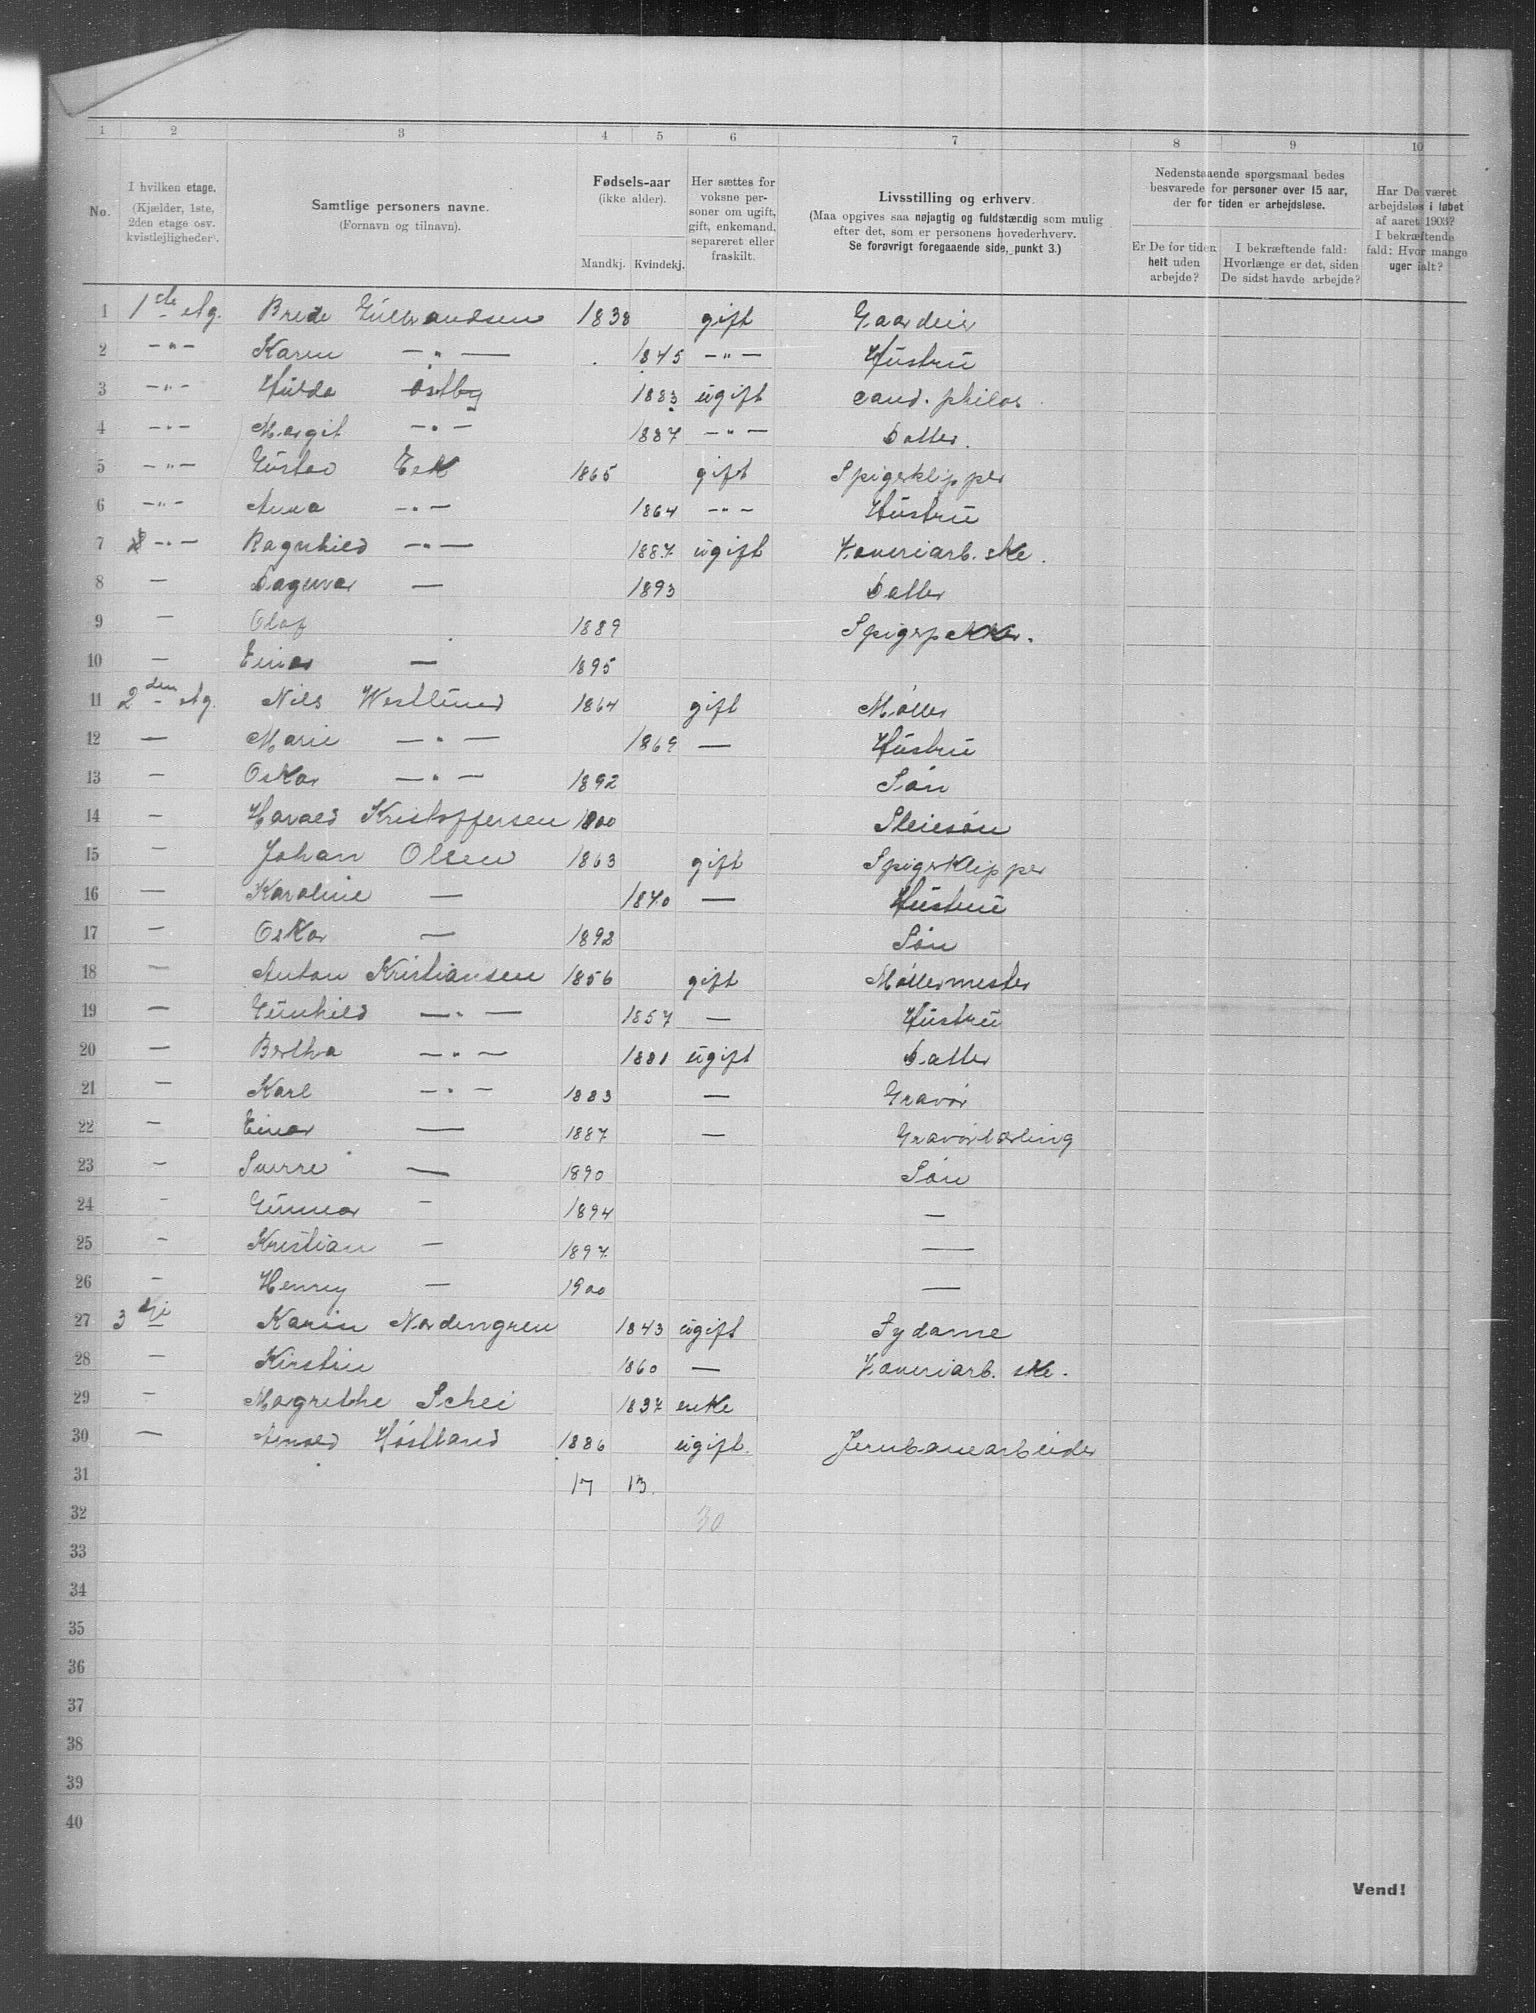 1 2 3 4 5 6 7 8 9 10
No.
I hvilken etage. (Kjælder, 1ste, 2den etage osv. kvistlejligheder).
Samtlige personers navne. (Fornavn og tilnavn).
Fødsels-aar (ikke alder). Mandkj. Kvindekj.
Her sættes for voksne personer om ugift, gift, enkemand, separeret eller fraskilt.
Livsstilling og erhverv. (Maa opgives saa nøjagtig og fuldstændig som mulig efter det, som er personens hovederhverv. Se forøvrigt foregaaende side, punkt 3.)
Nedenstaaende spørgsmaal bedes besvarede for personer over 15 aar, der for tiden er arbejdsløse.
Er De for tiden helt uden arbejde?
I bekræftende fald: Hvorlænge er det, siden De sidst havde arbejde?
Har De været arbejdsløs i løbet af aaret 1903? I bekræftende fald: Hvor mange uger ialt?
1 1ste etg. Brede Gulbrandsen 1838 gift Gaardeier
2 —"— Karen —"— 1845 —"— Hustru
3 —"— Hulda Østby 1883 ugift cand. philos
4 —"— Margit —"— 1887 —"— Datter.
5 —"— Gustav Eek 1865 gift Spigerklipper
6 —"— Anna —"— 1864 —"— Hustru
7 —"— Ragnhild —"— 1887 ugift arb.ske.
8 — Dagmar — 1893 Datter
9 — Olaf 1889 Spigerpakker.
10 — Einar — 1895
11 2den etg. Nils Westlund 1864 gift Møller
12 — Marie —"— 1869 — Hustru
13 — Oskar —"— 1892 Søn
14 — Harald Kristoffersen 1900 Pleiesøn
15 — Johan Olsen 1863 gift Spigerklipper
16 — Karoline — 1840 — Hustru
17 — Oskar — 1892 Søn
18 — Anton Kristiansen 1856 gift Møllermester
19 — Gunhild —"— 1857 — Hustru
20 — Bertha —"— 1881 ugift Datter
21 — Karl —"— 1883 — Gravør
22 — Einar — 1887 — Gravørlærling
23 — Sverre — 1890 Søn
24 — Gunnar — 1894 —
25 — Kristian — 1897 —
26 — Henry — 1900 —
27 3dje Karin Nordengren 1843 ugift Sydame
28 — Kirstin 1860 — arb.ske.
29 — Margrethe Schei 1837 enke
30 — Høstland 1886 ugift. Jernbanearbeider
31 17 13.
32 30
33
34
35
36
37
38
39
40
Vend!